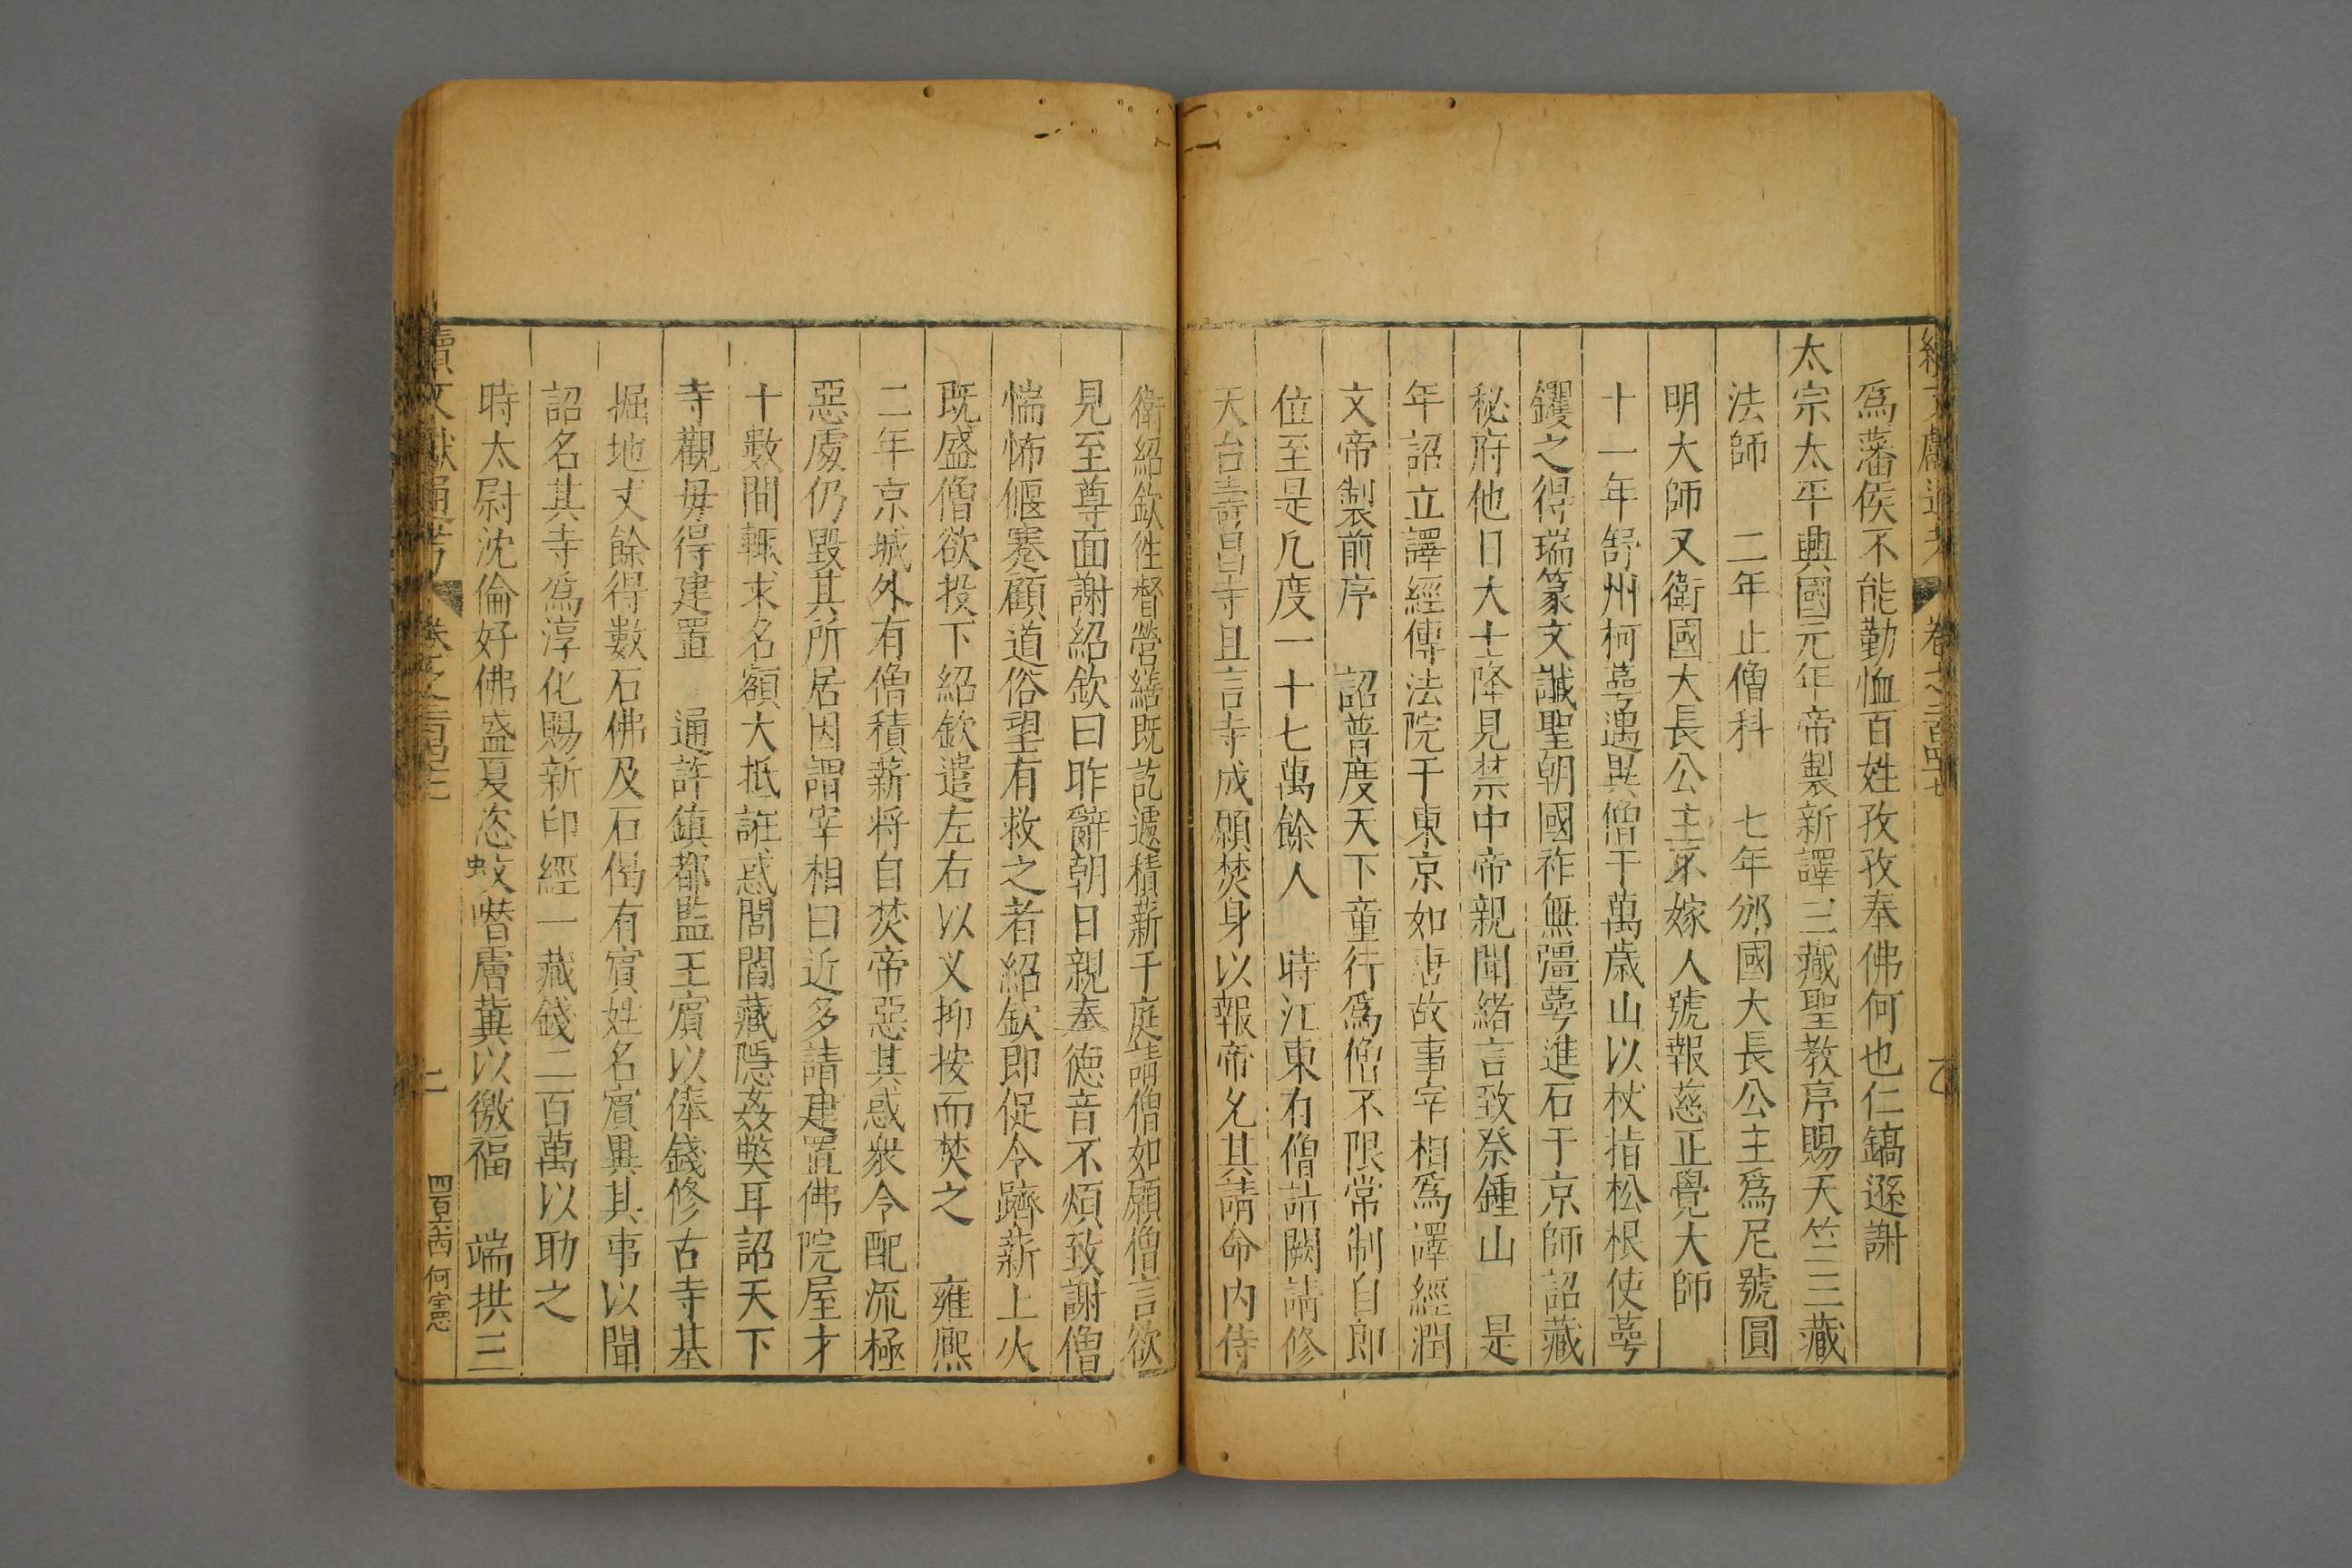 續文獻通考 卷之二百四十七
為藩侯不能勤恤百姓孜孜奉佛何也仁鎬遜謝
太宗太平興國元年帝製新譯三藏聖教序賜天竺三藏
法師 二年止僧科 七年邠國大長公主為尼號圓
明大師又衛國大長公主不嫁人號報慈正覺大師
十一年舒州柯萼遇異僧于萬歲山以杖指松根使萼
钁之得瑞篆文讖聖朝國祚無彊萼進石于京師詔藏
秘府他日大士降見禁中帝親聞緒言致祭鍾山 是
年詔立譯經傳法院于東京如唐故事宰相為譯經潤
文帝製前序 詔普度天下童行為僧不限常制自即
位至是凢度一十七萬餘人 時江東有僧詣闕請修
天台壽昌寺且言寺成願焚身以報帝允其請命內侍
衛紹欽徃督營繕既訖遽積薪于庭請僧如願僧言欲
見至尊面謝紹欽曰昨辭朝日親奉德音不煩致謝僧
惴怖偃蹇顧道俗望有救之者紹欽即促令躋薪上火
既盛僧欲投下紹欽遣左右以义抑按而焚之 雍熈
二年京城外有僧積薪將自焚帝惡其惑衆令配流極
惡處仍毀其所居因謂宰相曰近多請建置佛院屋才
十數間輒求名額大抵誑惑閭閻藏隱姦獘耳詔天下
寺觀毋得建置 通許鎮都監王賔以俸錢修古寺基
掘地丈餘得數石佛及石偈有賔姓名賔異其事以聞
詔名其寺為淳化賜新印經一藏錢二百萬以助之
時太尉沈倫好佛盛夏恣蚊噆膚冀以徼福 端拱三
續文獻通考 卷之二百四十七 二 四百六六十四 何宪